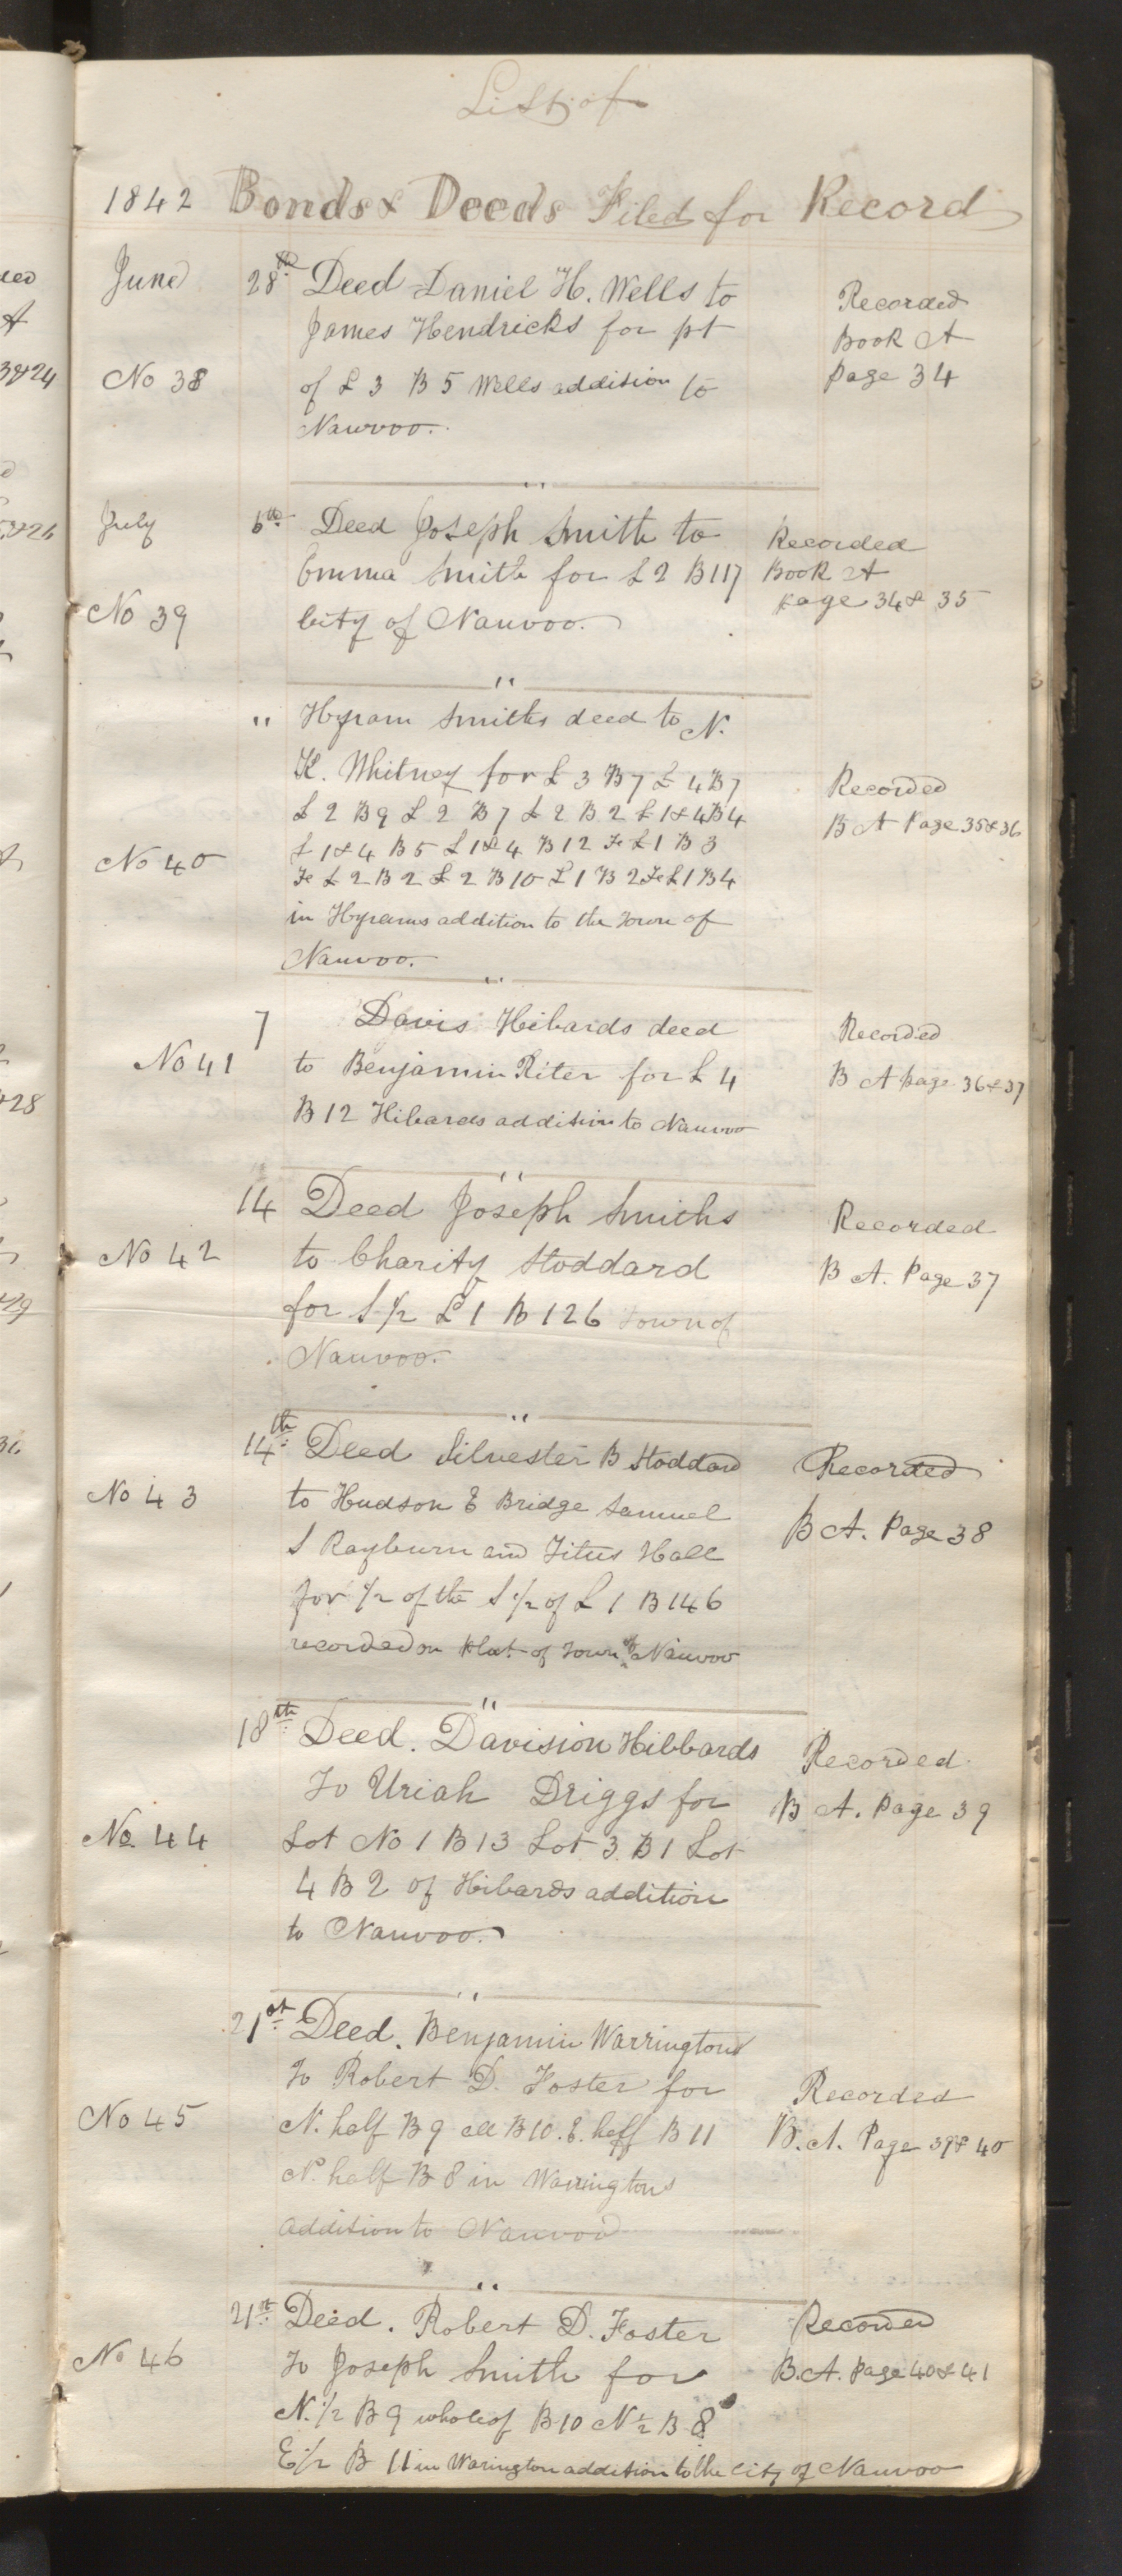 List of
1842 Bonds & Deeds Filed for Record
June 28th Deed Daniel H. Wells to
James Hendricks for pt
No 38 of L 3 B 5 Wells addition to
Nauvoo.
Recorded
Book A
page 34
"
July 6th Deed Joseph Smith to
Emma Smith for L 2 B 117
No 39 City of Nauvoo.
Recorded
Book A
page 34 & 35
"
" Hyram Smiths deed to N.
K. Whitney for L 3 B 7 L 4 B 7
L 2 B 9 L 2 B 7 L 2 B 2 L 1 & 4 B 4
No 40 L 1 & 4 B 5 L 1 & 4 B 12 Fe L 1 B 3
Fe L 2 B 2 L 2 B 10 L 1 B 2 Fe L 1 B 4
in Hyrams addition to the Town of
Nauvoo.
Recorded
B A Page 35 & 36
"
7 Davis Hibards deed
No 41 to Benjamin Riter for L 4
B 12 Hibards addition to Nauvoo
Recorded
B A page 36 & 37
"
14 Deed Joseph Smiths
No 42 to Charity Stoddard
for S 1/2 L 1 B 126 Town of
Nauvoo.
Recorded
B A. Page 37
"
14th Deed Silvester B Stoddard
No 43 to Hudson E Bridge Samuel
S Rayburn and Titus Hall
for 1/2 of the S 1/2 of L 1 B 146
recorded on plat of Town of Nauvoo
Recorded
B A. Page 38
"
18th Deed. Davision Hibbards
To Uriah Driggs for
No 44 Lot No 1 B 13 Lot 3 B 1 Lot
4 B 2 of Hibards addition
to Nauvoo.
Recorded
B A. Page 39
"
21st Deed. Benjamin Warringtons
To Robert D. Foster for
No 45 N. half B 9 all B 10. E. half B 11
N. half B 8 in Warringtons
addition to Nauvoo
Recorded
B. A. Page 39 & 40
"
21st Deed. Robert D. Foster
No 46 To Joseph Smith for
N. 1/2 B 9 whole of B 10 N 1/2 B 8
E 1/2 B 11 in Warington addition to the City of Nauvoo
Recorded
B. A. Page 40 & 41